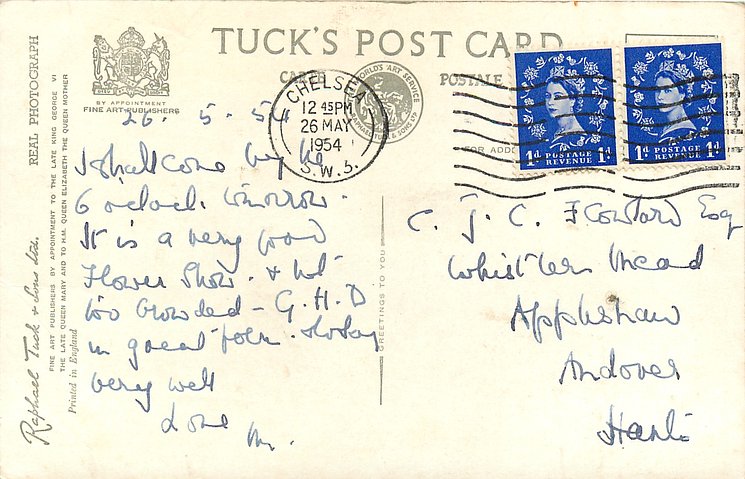 TUCK'S POST CARD
CARTE POSTALE
BY APPOINTMENT
FINE ART PUBLISHERS
REAL PHOTOGRAPH
Raphael Tuck & Sons Ltd.
FINE ART PUBLISHERS BY APPOINTMENT TO THE LATE KING GEORGE VI
THE LATE QUEEN MARY AND TO H.M. QUEEN ELIZABETH THE QUEEN MOTHER
Printed in England
WORLD'S ART SERVICE
RAPHAEL TUCK & SONS LTD
CHELSEA
12 45 PM
26 MAY
1954
S.W.3.
1d POSTAGE 1d
REVENUE
1d POSTAGE 1d
REVENUE
FOR ADD
GREETINGS TO YOU
26. 5. 54
I shall come by the
6 o'clock tomorrow.
It is a very good
Flower Show. & not
too crowded - G.H.D
in great form.
very well
Love
M.
C. J. C. Esq
Whistlers Mead
Appleshaw
Andover
Hants